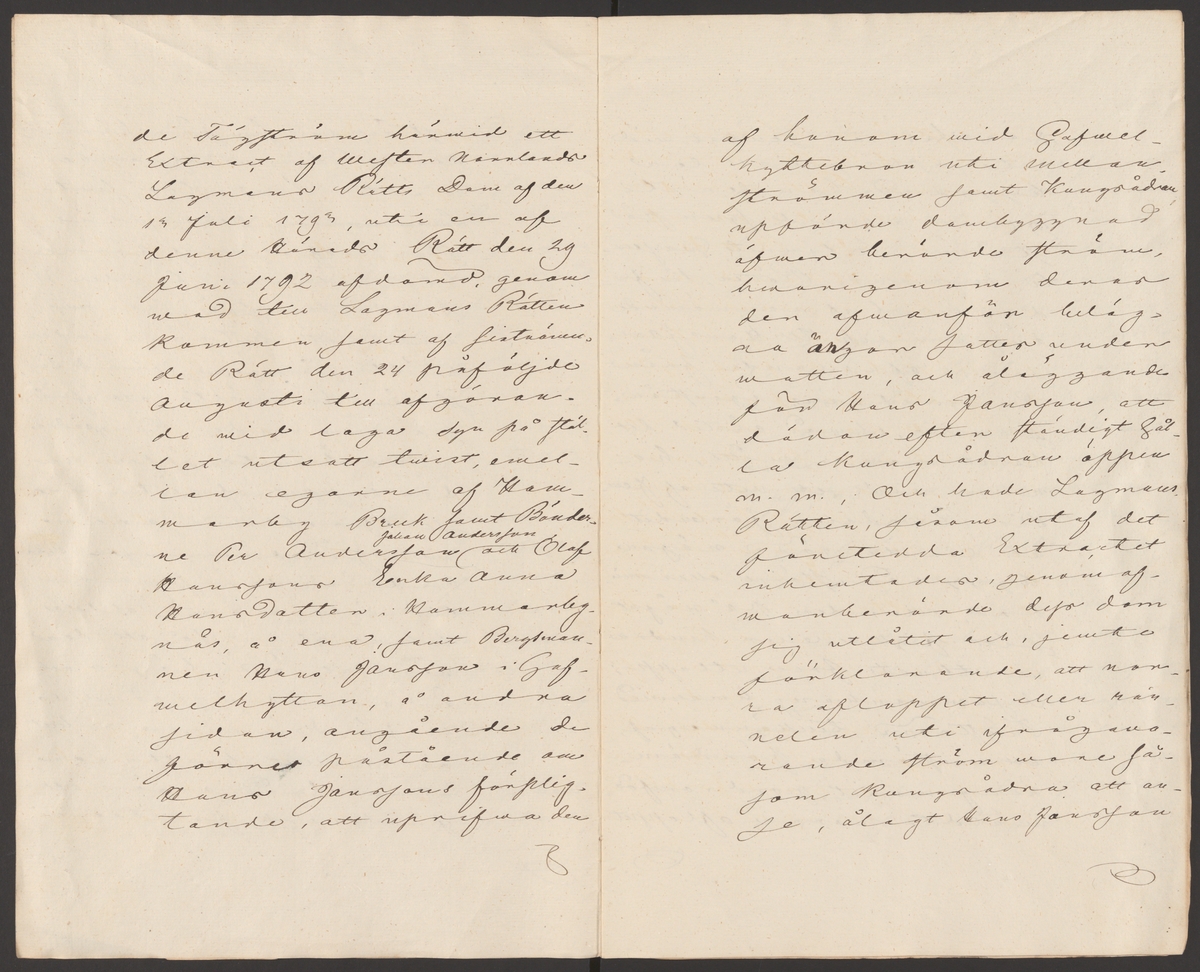 de Tägtström härwid ett
Extract af Wester Norrlands
Lagmans Rätts Dom af den
13 Juli 1793, uti en af
denne Härads Rätt den 29
Juni 1792 afdömd, genom
wad till Lagmans Rätten
kommen, samt af sistnämn-
de Rätt den 24 påföljde
Augusti till afgöran-
de wid laga syn på stäl-
let utsatt twist, emel-
lan egarne af Ham-
marby Bruk samt Bönder-
Johan Andersson
ne Per Andersson och Olof
Hanssons Enka Anna
Hansdotter i Hammarby-
näs, å ena, samt Bergsman-
nen Hans Jansson i Gaf-
welhyttan, å andra
sidan, angående de
förres påstående om
Hans Janssons förplig-
tande, att upprifwa den
af honom wid Gafwel-
hyttebron uti mellan
strömmen samt Kungsådran
uppförde dambyggnad
öfwer berörde ström,
hwarigenom deras
der ofwanför beläg-
na ängar sattes under
watten, och åläggande
för Hans Jansson, att
dädan efter ständigt hål-
la Kungsådran öppen
m. m., Och hade Lagmans
Rätten, såsom utaf det
företedda Extractet
inhemtades, genom of-
wanberörde dess dom
sig utlåtit och, jemte
förklarande, att nor-
ra afloppet eller rän-
nelen uti ifrågawa-
rande ström wore så-
som Kungsådra att an-
se, ålagt Hans Jansson